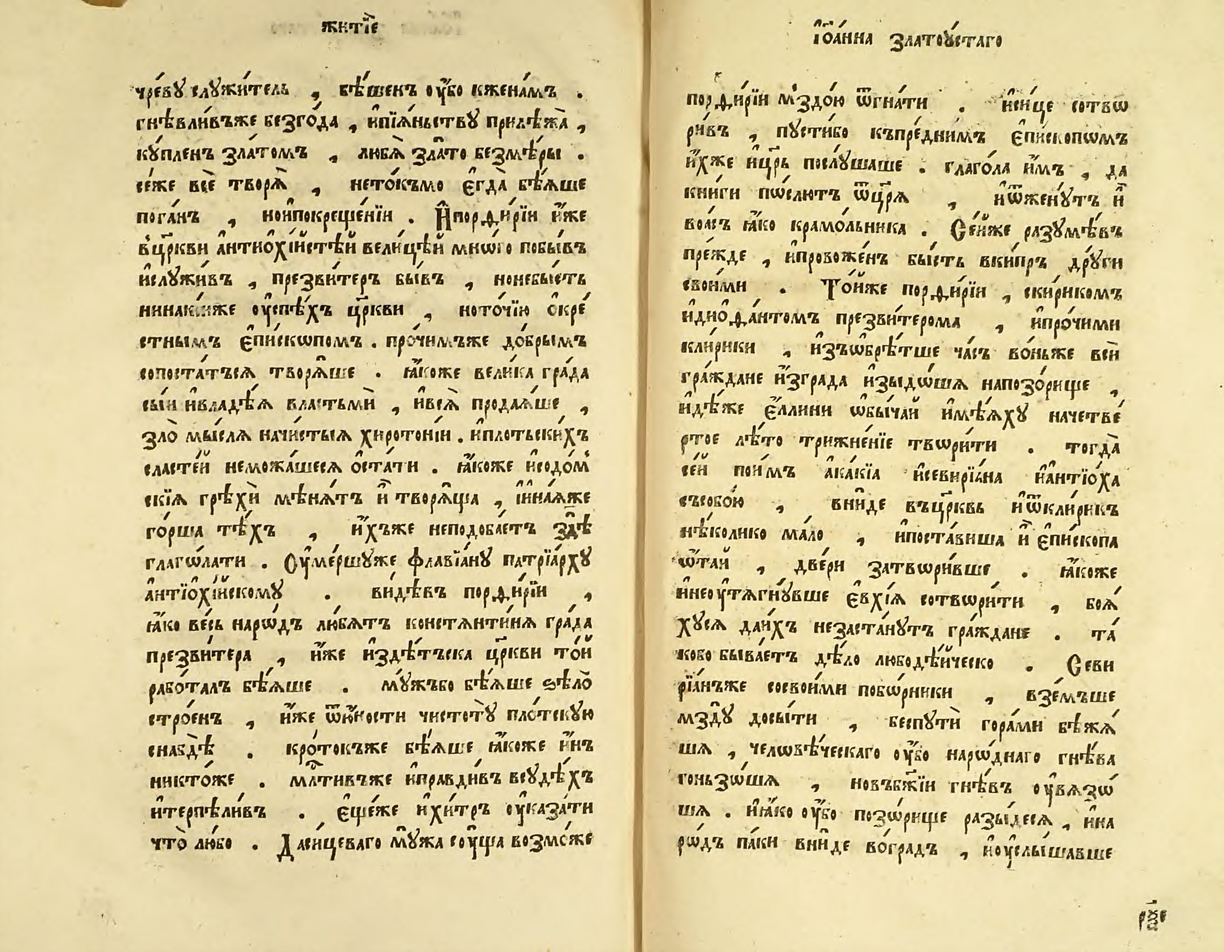 житїе
чре́вꙋ слꙋжи́тель , бѣ́шенъ ᲂу҆́бо кженам́ъ .
гнѣвли́въже безго́да , ипїѧ́ньствꙋ прилѣжа̀ ,
кꙋ́пленъ зла́томъ , любѧ̀ зла́то безмѣ́ры .
се́же всѐ творѧ̀ , нето́къмо є҆гда̀ бѣѧ́ше
пога́нъ , ноипокреще́нїи . И҆порфи́рїи и҆́же
в҆цр҃кви а҆нтиѡхі́йстѣй вели́цѣй мно́го побы́въ
и҆слꙋжи́въ , презви́теръ бы́въ , нонебы́сть
нинаки́иже ᲂу҆спѣ́хъ цр҃кви , ното́чїю о҆кре́
стнымъ є҆пи́скѡпомъ . про́чимъже до́брымъ
сопоста́тъсѧ творѧ́ше . ꙗ҆́коже вели́ка гра́да
сы́и и҆владѣ́ѧ вла́стьми , и҆всѧ̀ продаѧ́ше ,
зло̀ мы́слѧ начи́стыѧ хирото́нїи . и҆пло́тьскихъ
сласте́й неможа́шесѧ ѻ҆ста́ти . ꙗ҆́коже и҆содо́м
скїѧ грѣхѝ мѣнѧ́тъ и҆̀ творѧ́ща , и҆и҆на́ѧже
го́рша тѣ́хъ , и҆́хъже неподоба́етъ здѣ̀
глаго́лати . Оу҆ме́ршꙋже флавїа́нꙋ патрїа́рхꙋ
а҆нтїѡхі́йскомꙋ . ви́дѣвъ порфи́рїи ,
ꙗ҆́ко ве́сь наро́дъ лю́бѧтъ констѧнти́нѧ гра́да
презви́тера , и҆́же издѣ́тъска цр҃кви то́и
рабо́талъ бѣѧ́ше . мꙋ́жъбо бѣѧ́ше ѕѣло̀
стро́енъ , и҆́же ѿю҆́ности чистотꙋ̀ пло́тскꙋю
снабдѣ̀ . кро́токъже бѣѧ́ше ꙗ҆́коже и҆́нъ
никто́же . мл҃тивъже и҆пра́вдивъ всꙋдѣ́хъ
и҆терпѣли́въ . є҆ще́же и҆хи́тръ ᲂу҆каза́ти
что̀ лю́бо . Даси́цеваго мꙋ́жа сꙋ́ща возмо́же
і҆ѡа́нна златоꙋ́стаго
порфи́рїи м҆здо́ю ѿгна́ти . и҆си́це сотво
ри́въ , пꙋсти́бо къпре́днимъ є҆пи́скопѡмъ
и҆́хже и҆цр҃ь послꙋ́шаше . глаго́ла и҆́мъ , да
кни́ги по́слютъ ѿцр҃ѧ̀ , и҆ѿженꙋ́тъ и҆̀
во́лсъ ꙗ҆́ко крамо́льника . Се́йже разꙋмѣ́въ
пре́жде , и҆провоже́нъ бы́сть вки́пръ дрꙋ́ги
свои́ми . То́йже порфи́рїи , скирико́мъ
и҆диофа́нтомъ презви́терома , и҆про́чими
кли́рики , и҆з̾ѡбрѣ́тше ча́съ во́ньже всѝ
гра́ждане и҆згра́да и҆зыдо́шѧ напозо́рище ,
и҆дѣ́же є҆́ллини ѡ҆бы́чай и҆мѣ́ѧхꙋ начетве́
ртое лѣ́то трижне́нїе твори́ти . тогда̀
се́й пои́мъ а҆ка́кїа и҆севирїа́на и҆антїо́ха
съсобо́ю , вни́де въцр҃квь и҆ѿкли́рикъ
нѣ́колико ма́ло , и҆поста́виша и҆̀ є҆пи́скопа
ѿта́й , две́ри затвори́вше . ꙗ҆́коже
и҆неᲂутѧ́гнꙋвше є҆вхі́ѧ сотвори́ти , боѧ́
хꙋсѧ да́ихъ незаста́нꙋтъ гра́ждане . та́
кобо быва́етъ дѣ́ло любодѣ́йческо . Севи
рїа́нъже сосвои́ми побо́рники , взе́мъше
мздꙋ̀ до́сыти , беспꙋтѝ гора́ми бѣжа́
шѧ , человѣ́ческаго ᲂу҆́бо наро́днаго гнѣ́ва
гоньзо́шѧ , новъбж҃їи гнѣ́въ ᲂу҆вѧзо́
шѧ . и҆ꙗ҆́ко ᲂу҆́бо позо́рище разы́десѧ , и҆на
ро́дъ па́ки вни́де во́градъ , и҆ᲂу҆слы́шавше